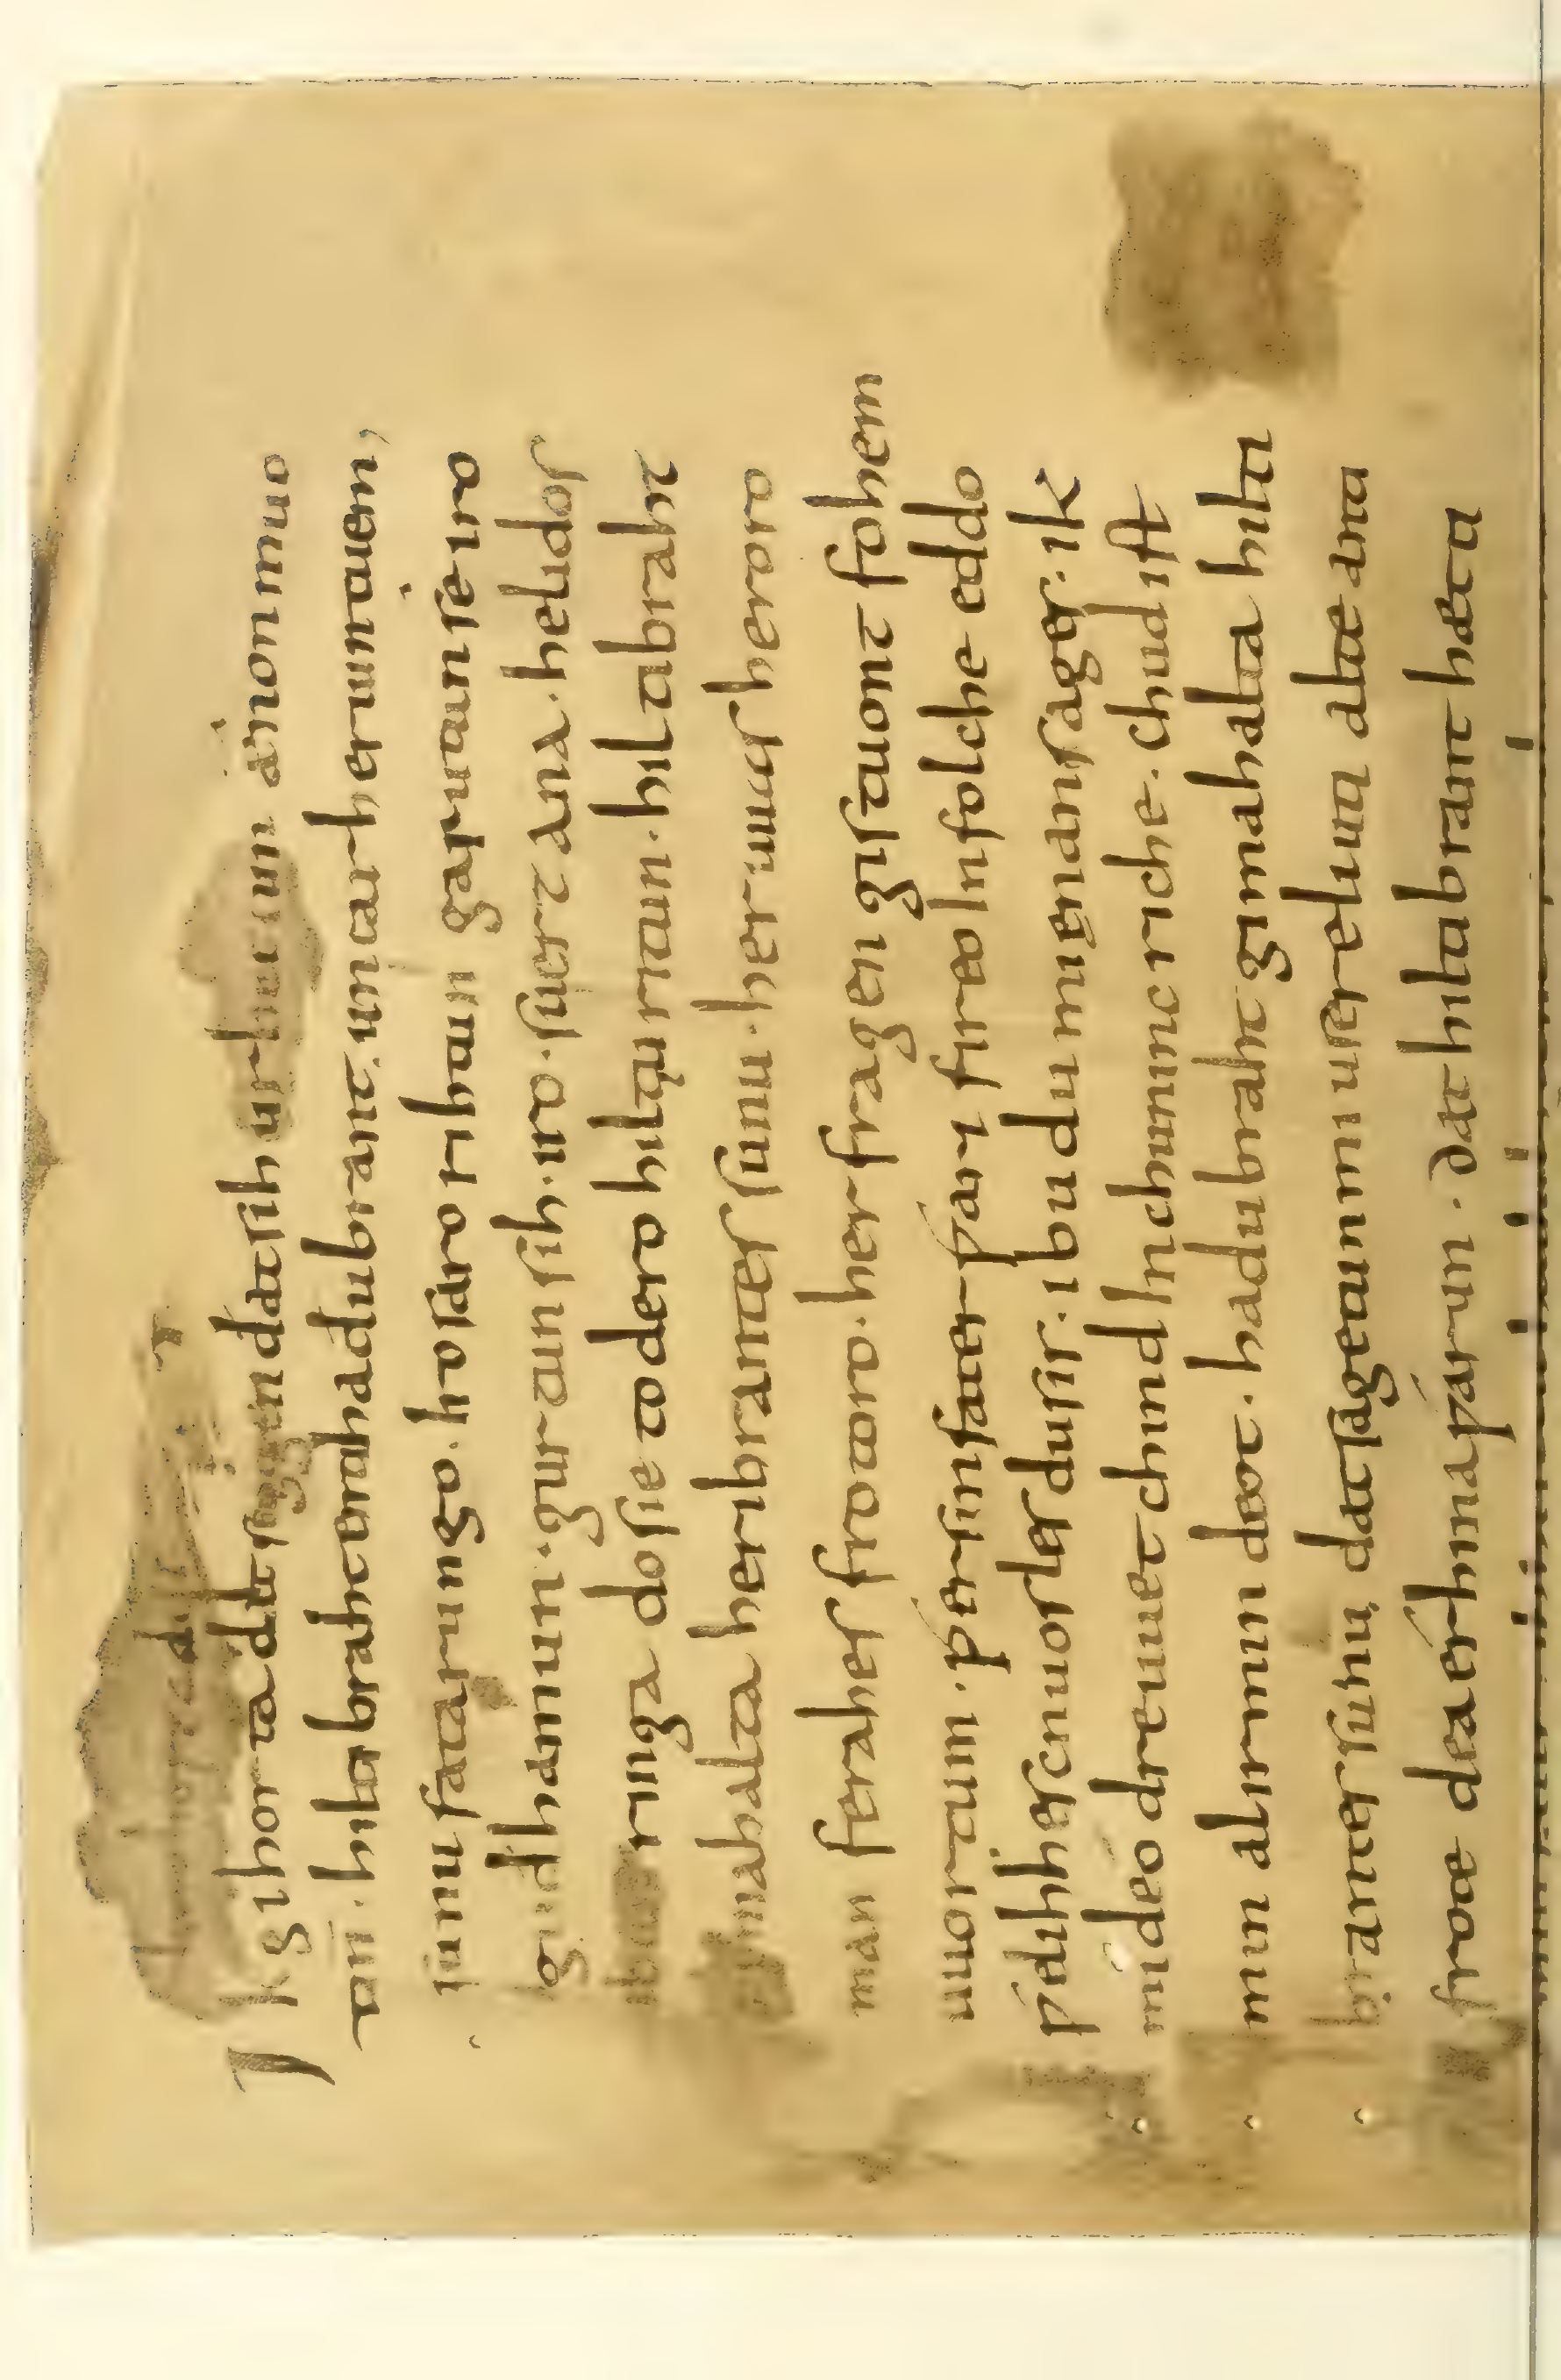 Ik gihorta dat seggen dat sih urhettun ænon muo
tin · hiltibraht enti hadubrant · untar heriun tuem,
sunu fatarungo · iro saro rihtun garutun se iro
gudhamun · gurtun sih · iro · suert ana · helidos
ubar ringa do sie to dero hiltiu ritun · hiltibraht
gimahalta heribrantes sunu · her uuas heroro
man ferahes frotoro · her fragen gistuont fohem
uuortum · ƿer sin fater ƿari fireo In folche eddo
ƿelihhes cnuosles du sis · ibu du mi ęnan sages · ik
mi deo dre uuet chind In chunincriche · chud ist
min al irmin deot · hadubraht gimahalta hilti
brantes sunu dat sagetun mi usere liuti alte anti
frote dea érhina ƿarun · dat hiltibrant hætti